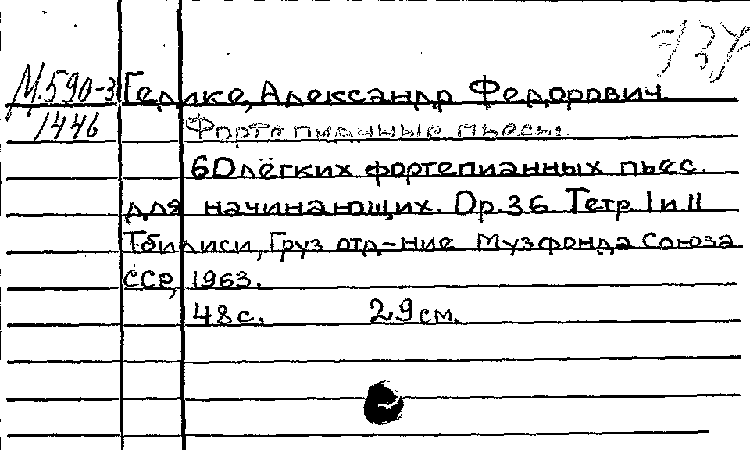 737
М.590-3 Гедике, Александр Федорович
1446 Фортепианные пьесы.
60 лёгких фортепианных пьес.
для начинающих. Ор.36 Тетр. I и II
Тбилиси, Груз отд-ние Музфонда Союза
ССР, 1963.
48с. 29см.